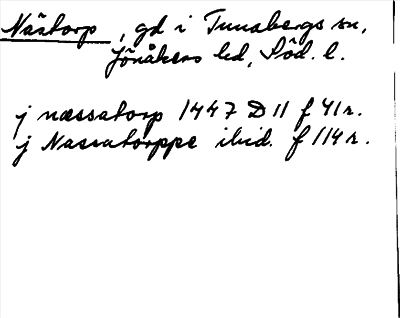 Nästorp, gd i Tunabergs sn,
Jönåkers hd, Söd. l.
j næssatorp 1447 D 11 f 41r.
j Nassatorppe ibid. f 114r.